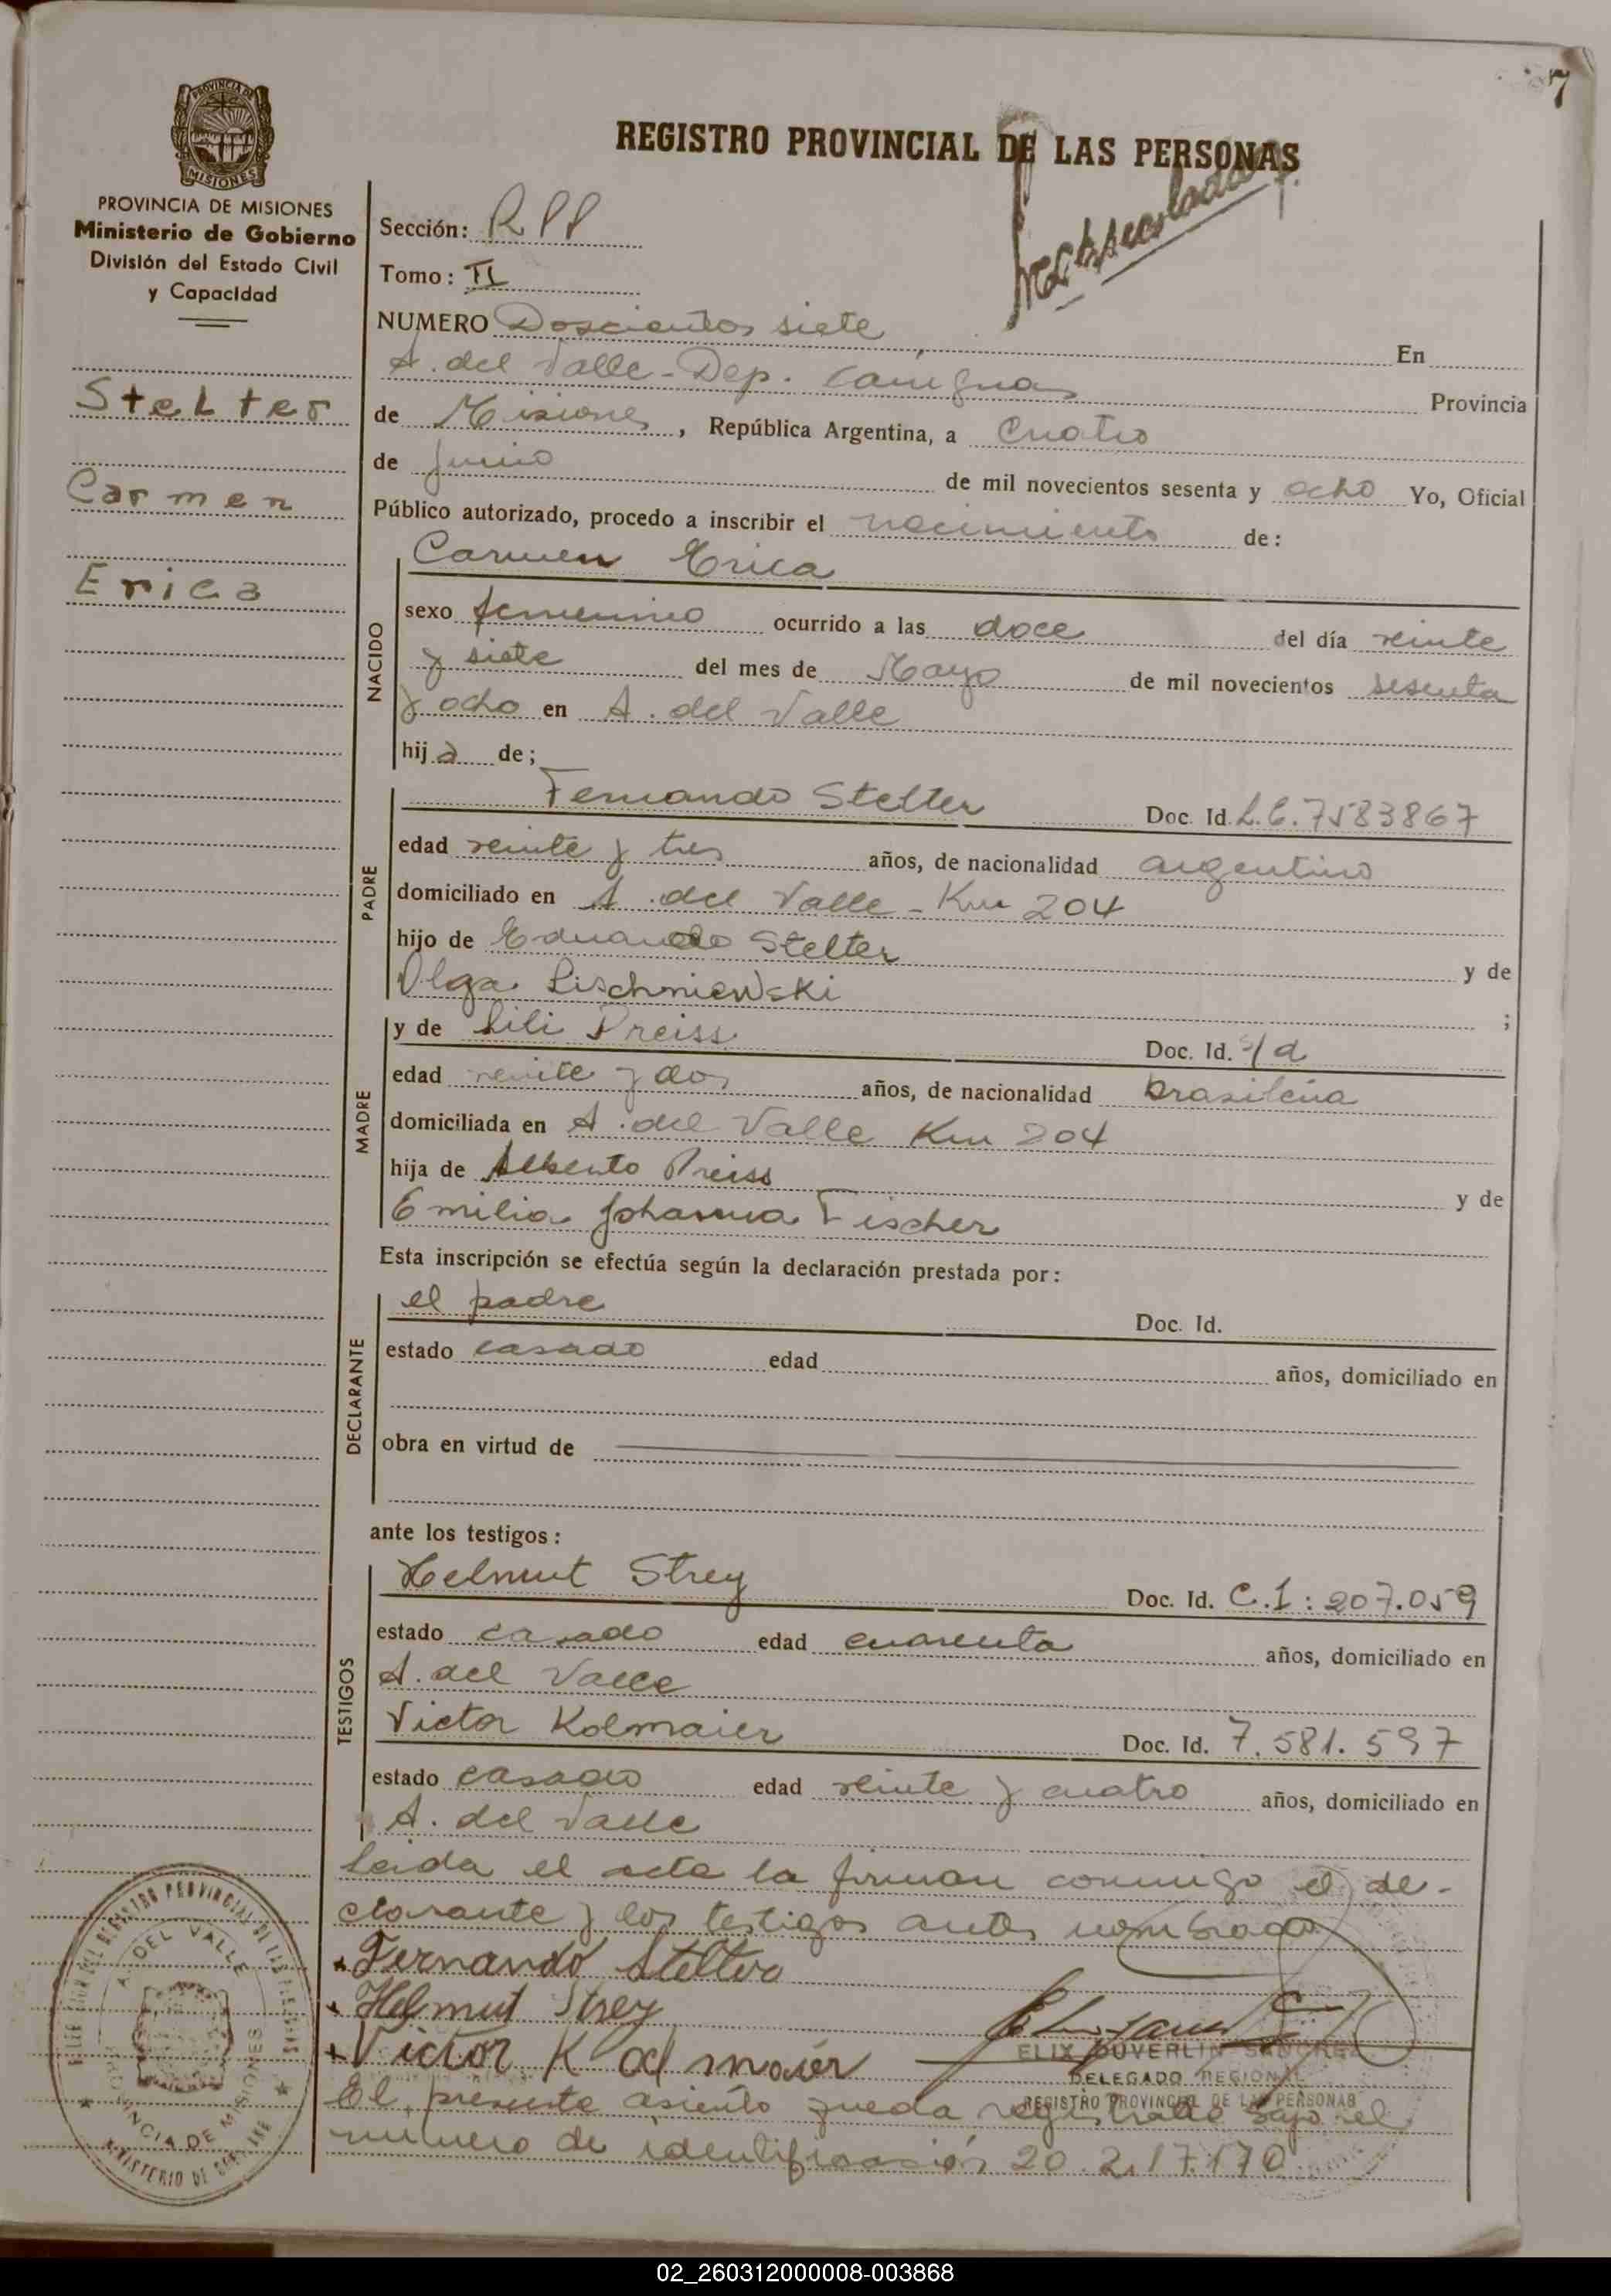 7
REGISTRO PROVINCIAL DE LAS PERSONAS
PROVINCIA DE MISIONES
Ministerio de Gobierno
División del Estado Civil
y Capacidad
Stelter
Carmen
Erica
Sección: RPP
Tomo: II
NUMERO Doscientos siete, En
A. del Valle - Dep. Cainguas Provincia
de Misiones, República Argentina, a Cuatro
de Junio de mil novecientos sesenta y ocho Yo, Oficial
Público autorizado, procedo a inscribir el nacimiento de:
NACIDO
Carmen Erica
sexo femenino ocurrido a las doce del día veinte
y siete del mes de Mayo de mil novecientos sesenta
y ocho en A. del Valle
hija de;
PADRE
Fernando Stelter Doc. Id. L.E. 7583867
edad veinte y tres años, de nacionalidad argentino
domiciliado en A. del Valle - Km 204
hijo de Eduardo Stelter y de
Olga Lischniewski ;
MADRE
y de Lili Preiss Doc. Id. s/d
edad veinte y dos años, de nacionalidad brasileña
domiciliada en A. del Valle Km 204
hija de Alberto Preiss y de
Emilia Johanna Fischer
Esta inscripción se efectúa según la declaración prestada por:
DECLARANTE
el padre Doc. Id.
estado casado edad años, domiciliado en
obra en virtud de
ante los testigos:
TESTIGOS
Helmut Strey Doc. Id. C.I: 207.059
estado casado edad cuarenta años, domiciliado en
A. del Valle
Victor Kolmaier Doc. Id. 7.581.597
estado casado edad veinte y cuatro años, domiciliado en
A. del Valle
Leida el acta la firman conmigo el de-
clarante y los testigos antes nombrados
Fernando Stelter
Helmut Strey
Victor Kolmaier
ELIX DUVERLIN SANCHEZ
DELEGADO REGIONAL
REGISTRO PROVINCIAL DE LAS PERSONAS
El presente asiento queda registrado bajo el
numero de identificación 20.217.170
A. DEL VALLE
PROVINCIA DE MISIONES
MINISTERIO DE GOBIERNO
02_260312000008-003868